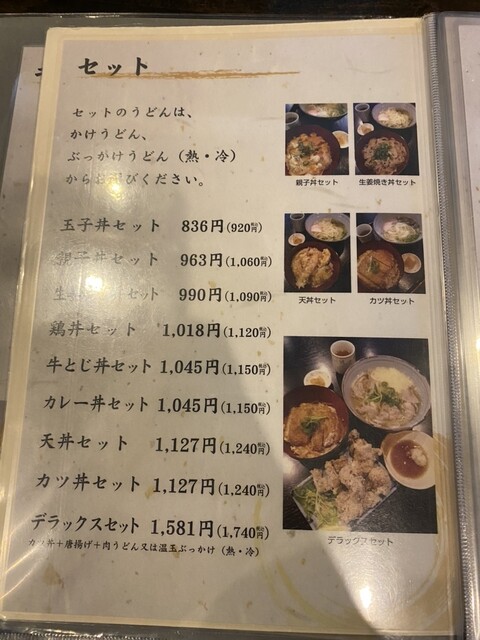 セット
セットのうどんは、
かけうどん、
ぶっかけうどん（熱・冷）
からお選びください。
親子丼セット
生姜焼き丼セット
天丼セット
カツ丼セット
玉子丼セット 836円(920税込円)
963円(1,060税込円)
990円(1,090税込円)
鶏丼セット 1,018円(1,120税込円)
牛とじ丼セット 1,045円(1,150税込円)
カレー丼セット 1,045円(1,150税込円)
天丼セット 1,127円(1,240税込円)
カツ丼セット 1,127円(1,240税込円)
デラックスセット 1,581円(1,740税込円)
カツ丼＋唐揚げ＋肉うどん又は温玉ぶっかけ（熱・冷）
デラックスセット